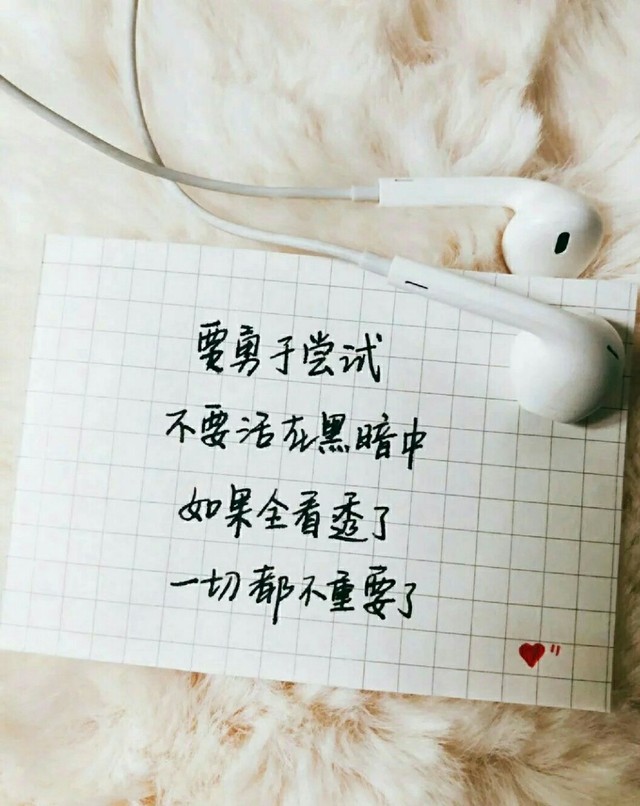 要勇于尝试
不要活在黑暗中
如果全看透了
一切都不重要了